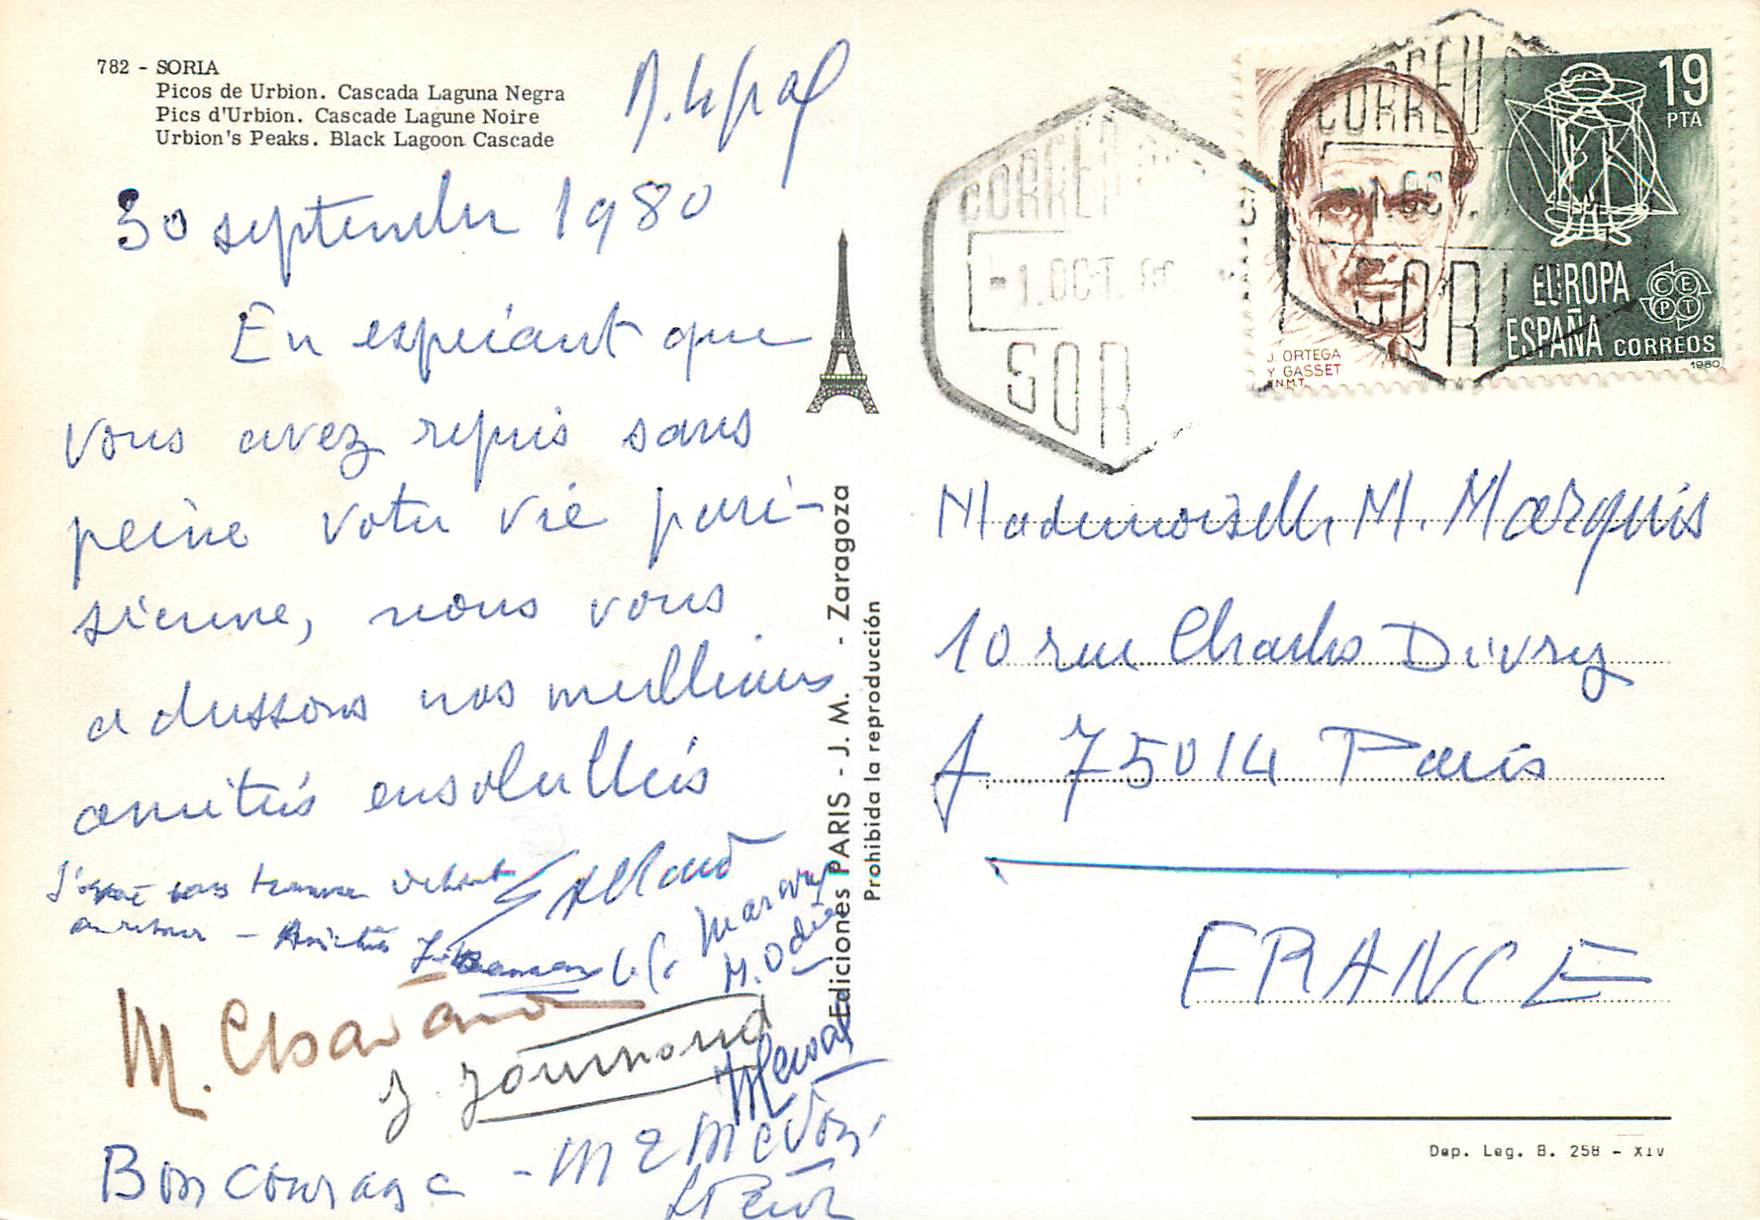 782 - SORIA
Picos de Urbion. Cascada Laguna Negra
Pics d'Urbion. Cascade Lagune Noire
Urbion's Peaks. Black Lagoon Cascade
30 septembre 1980
En espérant que
vous avez repris sans
peine votre vie pari-
sienne, nous vous
adressons nos meilleures
amitiés ensoleillées
J'espère vous trouver
au retour - Amitiés
M. Odi
M.
J. Journond
Bon courage - M E M
Ediciones PARIS - J. M. - Zaragoza
Prohibida la reproducción
CORREOS
-1.OCT. 80
SOR
CORREOS
-1.OCT.
SORI
19
PTA
EUROPA
CEPT
ESPAÑA CORREOS
1980
J. ORTEGA
Y GASSET
F.N.M.T.
Mademoiselle M. Marquis
10 rue Charles Divry
f 75014 Paris
FRANCE
Dep. Leg. B. 258 - XIV